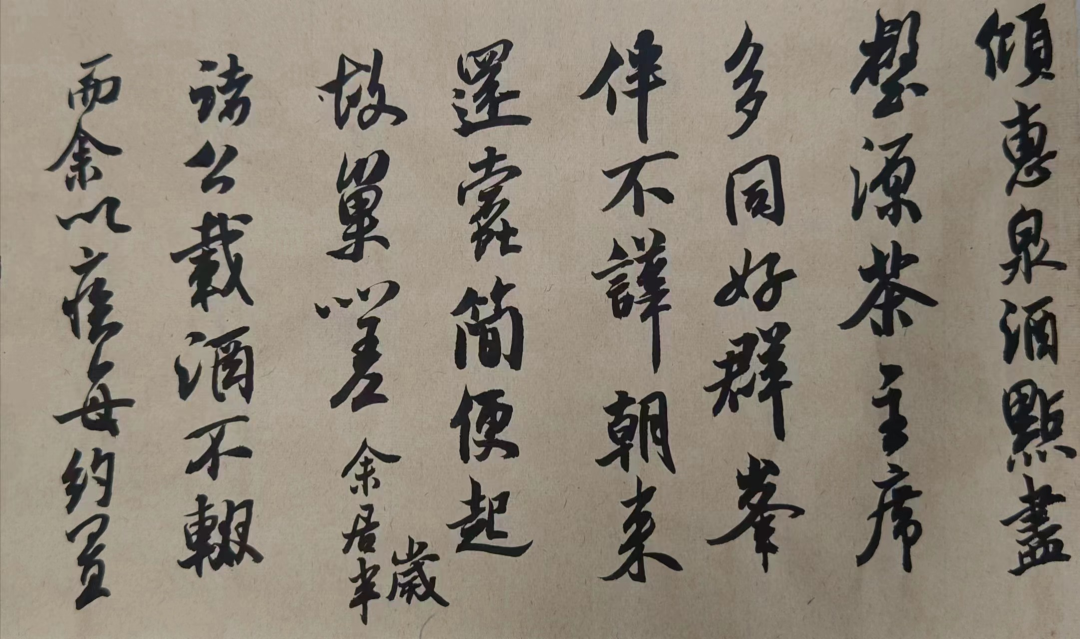 傾惠泉酒點盡
壑源茶主席
多同好群峯
伴不譁朝来
還蠹簡便起
故巢嗟余居半歲
諸公載酒不輟
而余以疾每約置